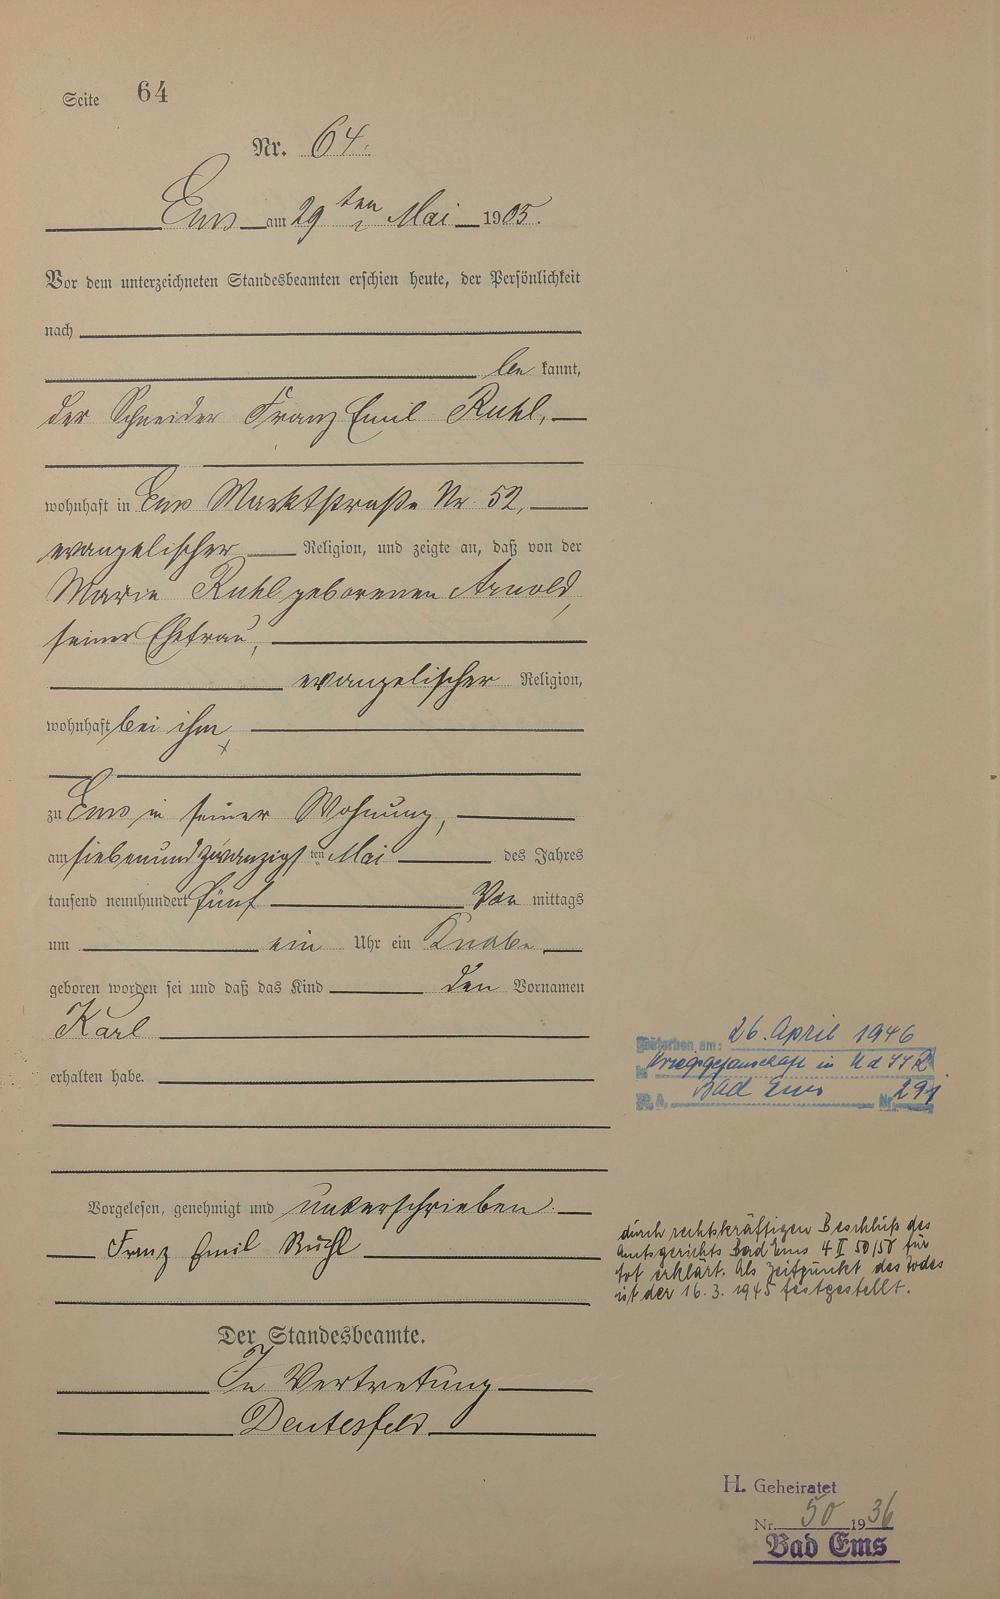 Seite 64
Nr. 64.
Ems am 29ten Mai 1905.
Vor dem unterzeichneten Standesbeamten erschien heute, der Persönlichkeit
nach
be kannt,
der Schneider Franz Emil Ruhl,
wohnhaft in Ems Marktstraße Nr. 52,
evangelischer Religion, und zeigte an, daß von der
Marie Ruhl geborenen Arnold,
seiner Ehefrau,
evangelischer Religion,
wohnhaft bei ihm,
zu Ems in seiner Wohnung,
am siebenundzwanzigsten Mai des Jahres
tausend neunhundert fünf Vor mittags
um ein Uhr ein Knabe
geboren worden sei und daß das Kind den Vornamen
Karl
erhalten habe.
Gestorben am: 26. April 1946
Kriegsgefangenschaft in UdSSR
St. A. Bad Ems Nr. 291
Vorgelesen, genehmigt und unterschrieben
Franz Emil Ruhl
durch rechtskräftigen Beschluß des
Amtsgerichts Bad Ems 4 II 50/50 für
tot erklärt. Als Zeitpunkt des Todes
ist der 16.3.1945 festgestellt.
Der Standesbeamte.
In Vertretung
Deutesfeld
H. Geheiratet
Nr. 50 1936
Bad Ems